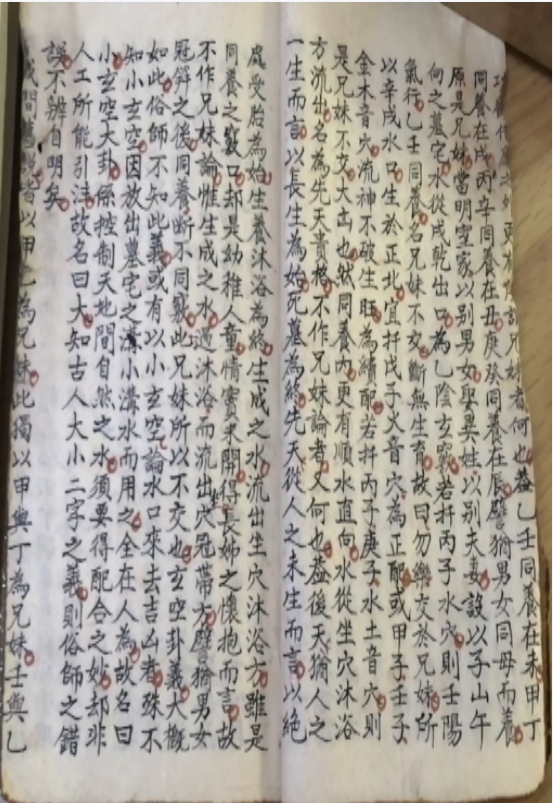 更有論兄妹者何也蓋乙壬同養在未甲丁
同養在戌丙辛同養在丑庚癸同養在辰譬猶男女同母而養
原是兄妹當明空家以別男女娶異姓以別夫妻設以子山午
向之墓宅水從戌乾出口為乙陰玄竅若扦丙子水穴則壬陽
氣行乙壬同養名兄妹不交斷無生育故曰勿樂交於兄妹所
以辛戌水口生於正北宜扦戊子火音穴為正配或甲子壬子
金木音穴流神不破生旺為續配若扦丙子庚子水土音穴則
是兄妹不交大凶也然同養內更有順水直向水從坐穴沐浴
方流出名為先天貴格不作兄妹論者又何也蓋後天猶人之
一生而言以長生為始死墓為終先天從人之未生而言以絕
處受胎為始生養沐浴為終生成之水流出坐穴沐浴方雖是
同養之竅口却是幼稚人童情竇未開得長姊之懷抱而言故
不作兄妹論惟生成之水過沐浴而流出穴冠帶方譬猶男女
冠笄之後同養斷不同竅此兄妹所以不交也玄空卦義大概
如此俗師不知此義或有以小玄空論水口來去吉凶者殊不
知小玄空因放出墓宅之溝小溝水而用之全在人為故名曰
小玄空大卦係控制天地間自然之水須要得配合之妙却非
人工所能引注故名曰大知古人大小二字之義則俗師之錯
誤不辨自明矣
皆以甲乙為兄妹此獨以甲與丁為兄妹壬與乙